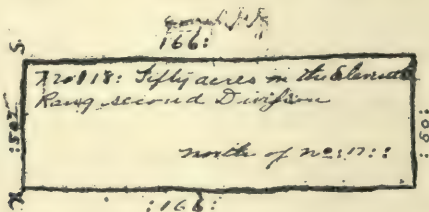 166:
S
No 18: Fifty acres in the Eleventh
Rang second Division
north of No: 17::
:50:
:50:
N
:166: